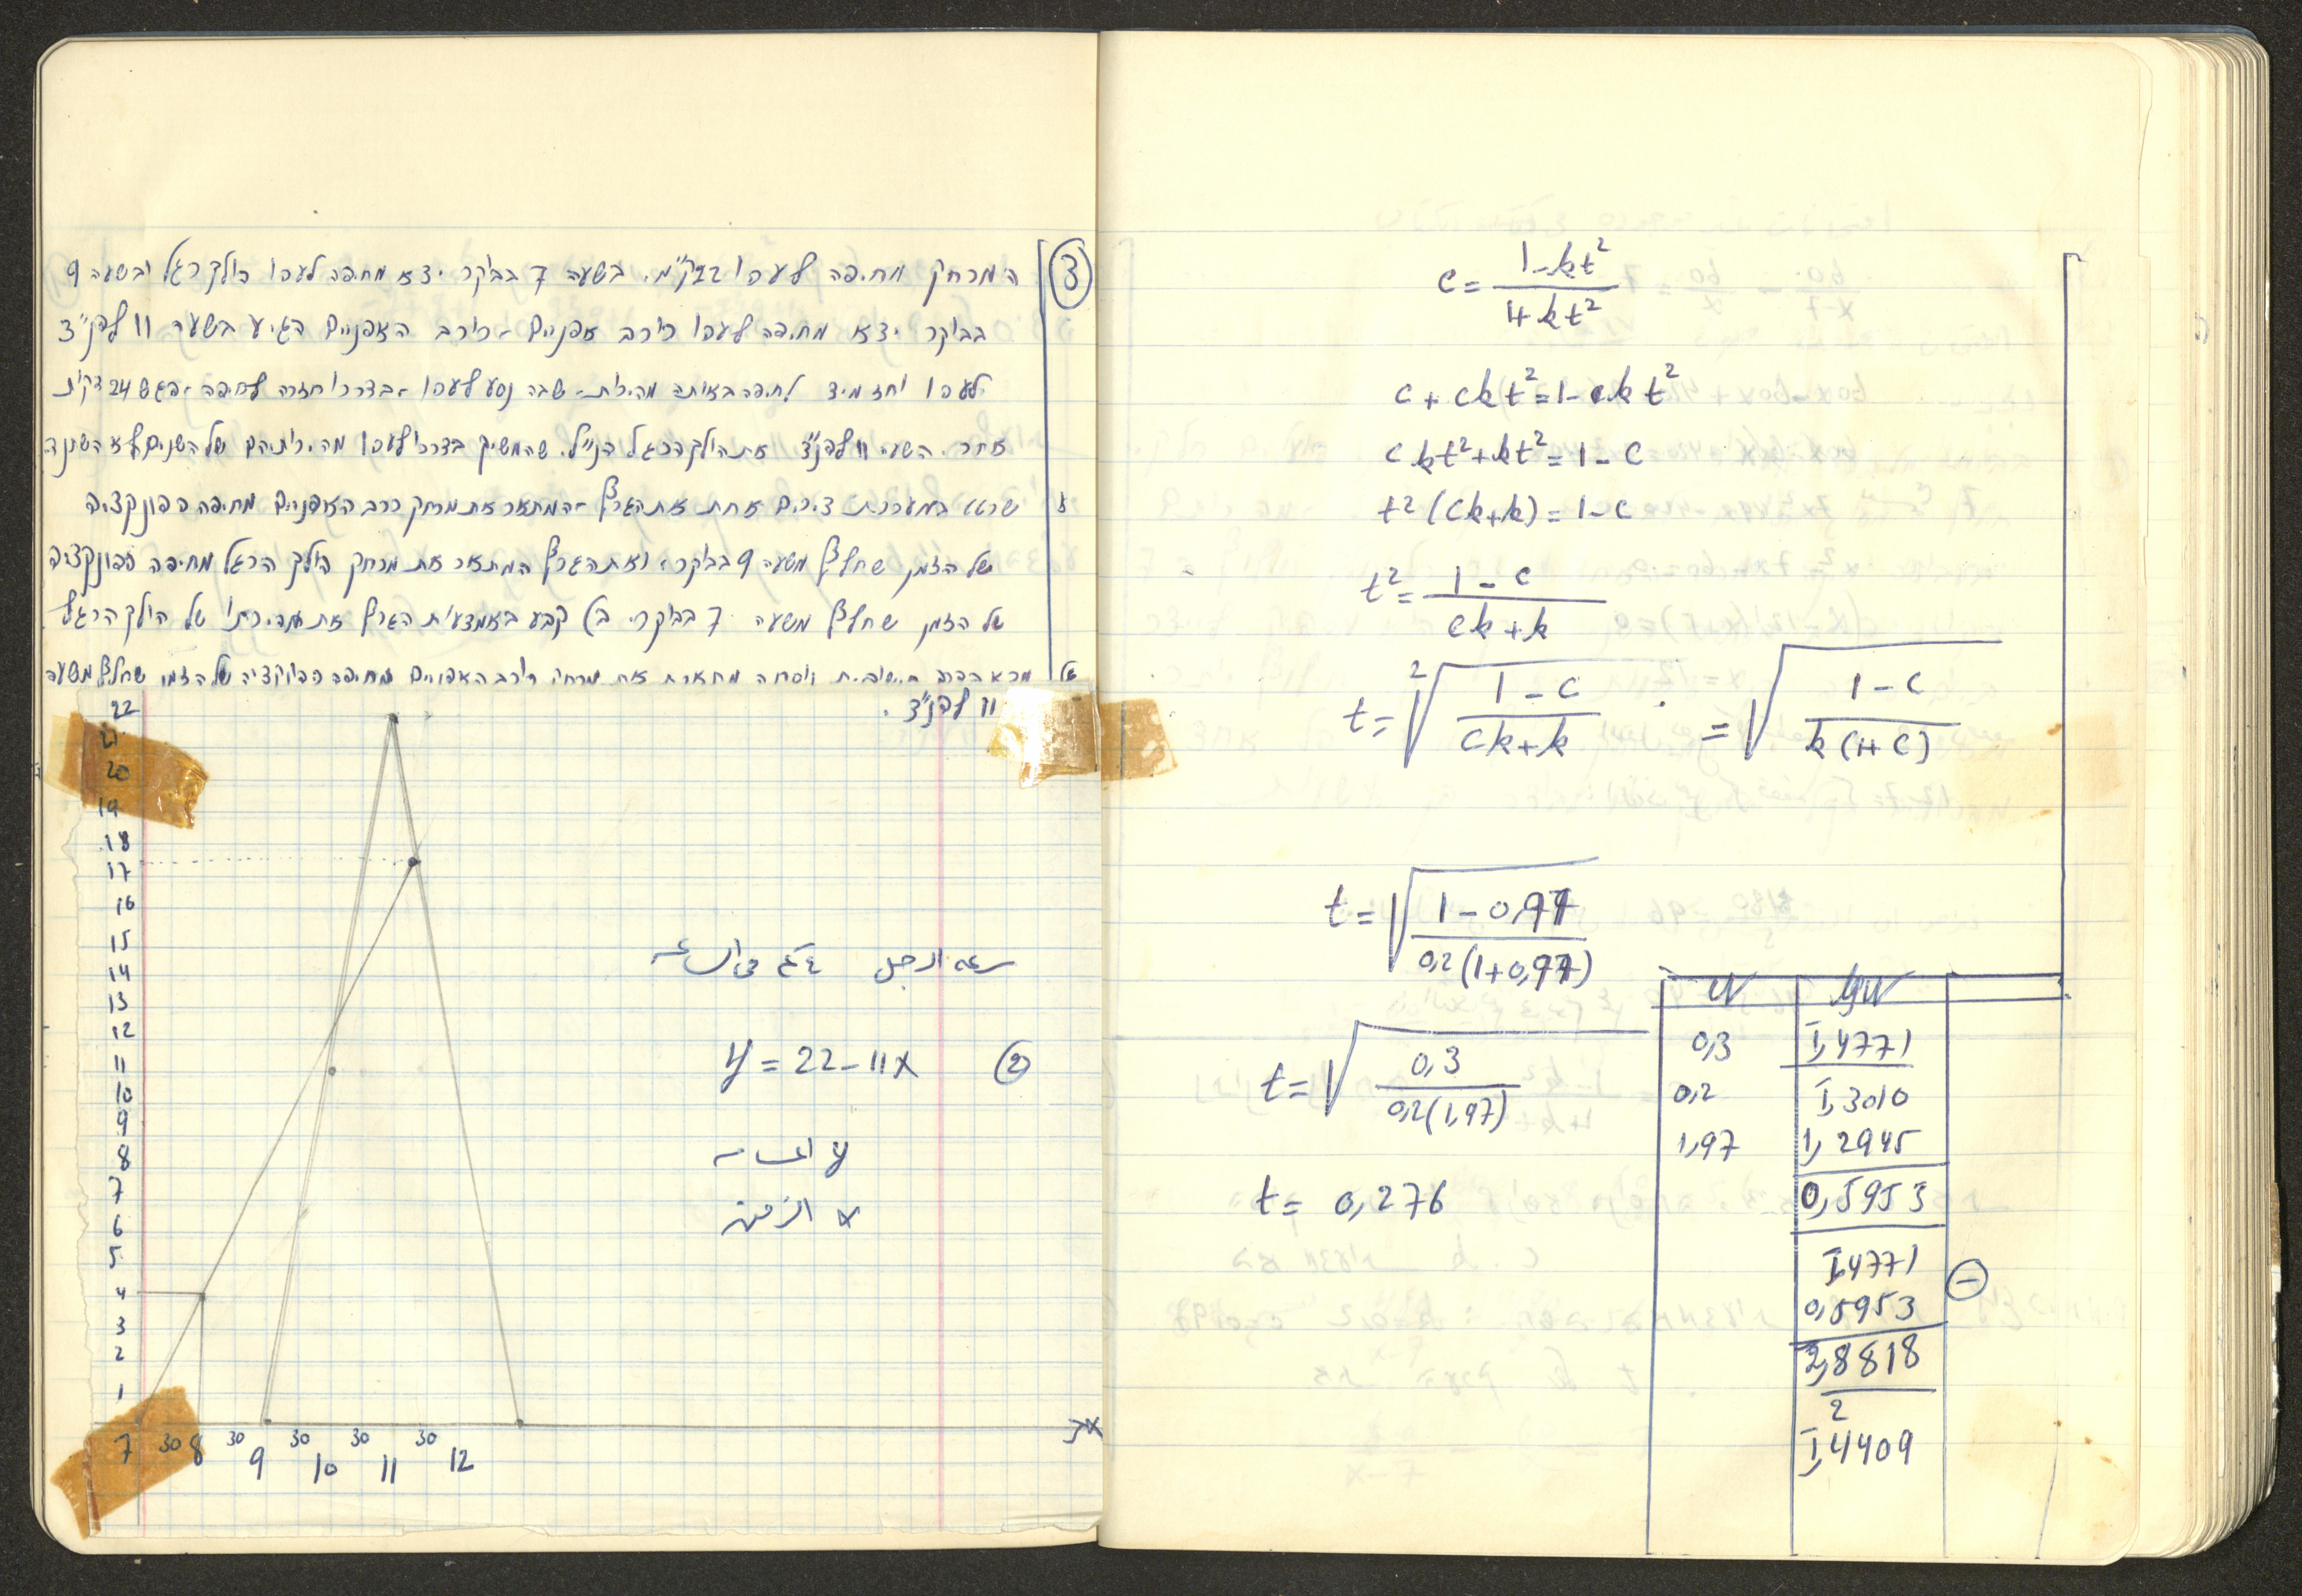 ③ המרחק מחיפה לעכו 22 ק"מ. בשעה 7 בבוקר יצא מחיפה לעכו הולך רגל ובשעה 9
בבוקר יצא מחיפה לעכו רוכב אפניים. רוכב האפניים הגיע בשעה 11 לפנ"צ
לעכו וחזר מיד לחיפה באותה מהירות שבה נסע לעכו. בדרכו חזרה לחיפה פגש 24 דקות
אחר השעה 11 לפנ"צ את הולך הרגל הנ"ל. שהמשיך בדרכו לעכו מהירותיהם של השנים לא השתנה.
א שרטט במערכת צירים אחת את הגרף המתאר את מרחק רוכב האפניים מחיפה כפונקציה
של הזמן שחלף משעה 9 בבוקר, ואת הגרף המתאר את מרחק הולך הרגל מחיפה כפונקציה
של הזמן שחלף משעה 7 בבוקר. ב) קבע באמצעות הגרף את מהירותו של הולך הרגל
נוסחה מתארת את מרחק רוכב האפניים מחיפה כפונקציה של הזמן שחלף משעה
11 לפנ"צ.
22
21
20
19
18
17
16
15
14
13
12
11
10
9
8
7
6
5
4
3
2
1
7 30 8 30 9 30 10 30 11 30 12
x
سرعة الرجل ٤ كم في الساعة
② y = 22 - 11x
y المسافة
x الزمن
c = (1 - kt²) / (1 + kt²)
c + ckt² = 1 - ckt²
ckt² + kt² = 1 - c
t² (ck + k) = 1 - c
t² = (1 - c) / (ck + k)
t = ²√((1 - c) / (ck + k)) = √((1 - c) / (k(1 + c)))
t = √((1 - 0,97) / (0,2(1 + 0,97)))
t = √(0,3 / (0,2(1,97)))
t = 0,276
N lgN
0,3 1̄,4771
0,2 1̄,3010
1,97 1,2945
0,5953
1̄,4771
0,5953
2,8818
2
1̄,4409